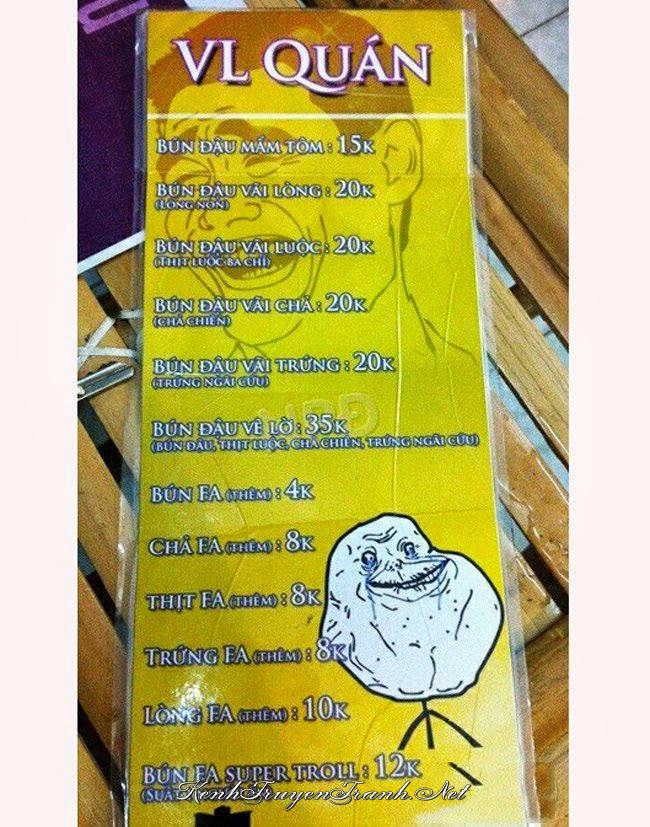 VL QUÁN
BÚN ĐẬU MẮM TÔM : 15K
BÚN ĐẬU VÃI LÒNG : 20K
(LÒNG NON)
BÚN ĐẬU VÃI LUỘC : 20K
(THỊT LUỘC BA CHỈ)
BÚN ĐẬU VÃI CHẢ : 20K
(CHẢ CHIÊN)
BÚN ĐẬU VÃI TRỨNG : 20K
(TRỨNG NGẢI CỨU)
BÚN ĐẬU VÊ LỜ : 35K
(BÚN ĐẬU, THỊT LUỘC, CHẢ CHIÊN, TRỨNG NGẢI CỨU)
BÚN FA (THÊM) : 4K
CHẢ FA (THÊM) : 8K
THỊT FA (THÊM) : 8K
TRỨNG FA (THÊM) : 8K
LÒNG FA (THÊM) : 10K
BÚN FA SUPER TROLL : 12K
(SUẤT
KenhTruyenTranh.Net